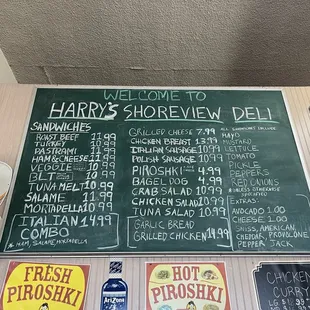 WELCOME TO
HARRY'S SHOREVIEW DELI
SANDWICHES
ROAST BEEF 11.99
TURKEY 10.99
PASTRAMI 11.99
HAM & CHEESE 11.99
VEGGIE
BLT 10.99
TUNA MELT 10.99
SALAME 11.99
MORTADELLA 10.99
ITALIAN 14.99
COMBO
HAM, SALAME, MORTADELLA
GRILLED CHEESE 7.99
CHICKEN BREAST 13.99
ITALIAN SAUSAGE 10.99
POLISH SAUSAGE 10.99
PIROSHKI 4.99
BAGEL DOG 4.99
CRAB SALAD 10.99
CHICKEN SALAD 10.99
TUNA SALAD 10.99
GARLIC BREAD
GRILLED CHICKEN 14.99
ALL SANDWICHES INCLUDE:
MAYO
MUSTARD
LETTUCE
TOMATO
PICKLE
PEPPERS
RED ONIONS
UNLESS OTHERWISE SPECIFIED
EXTRAS:
AVOCADO 1.00
CHEESE 1.00
SWISS, AMERICAN,
CHEDDAR, PROVOLONE
PEPPER JACK
FRESH
PIROSHKI
ARIZONA
HOT
PIROSHKI
CHICKEN
CURRY